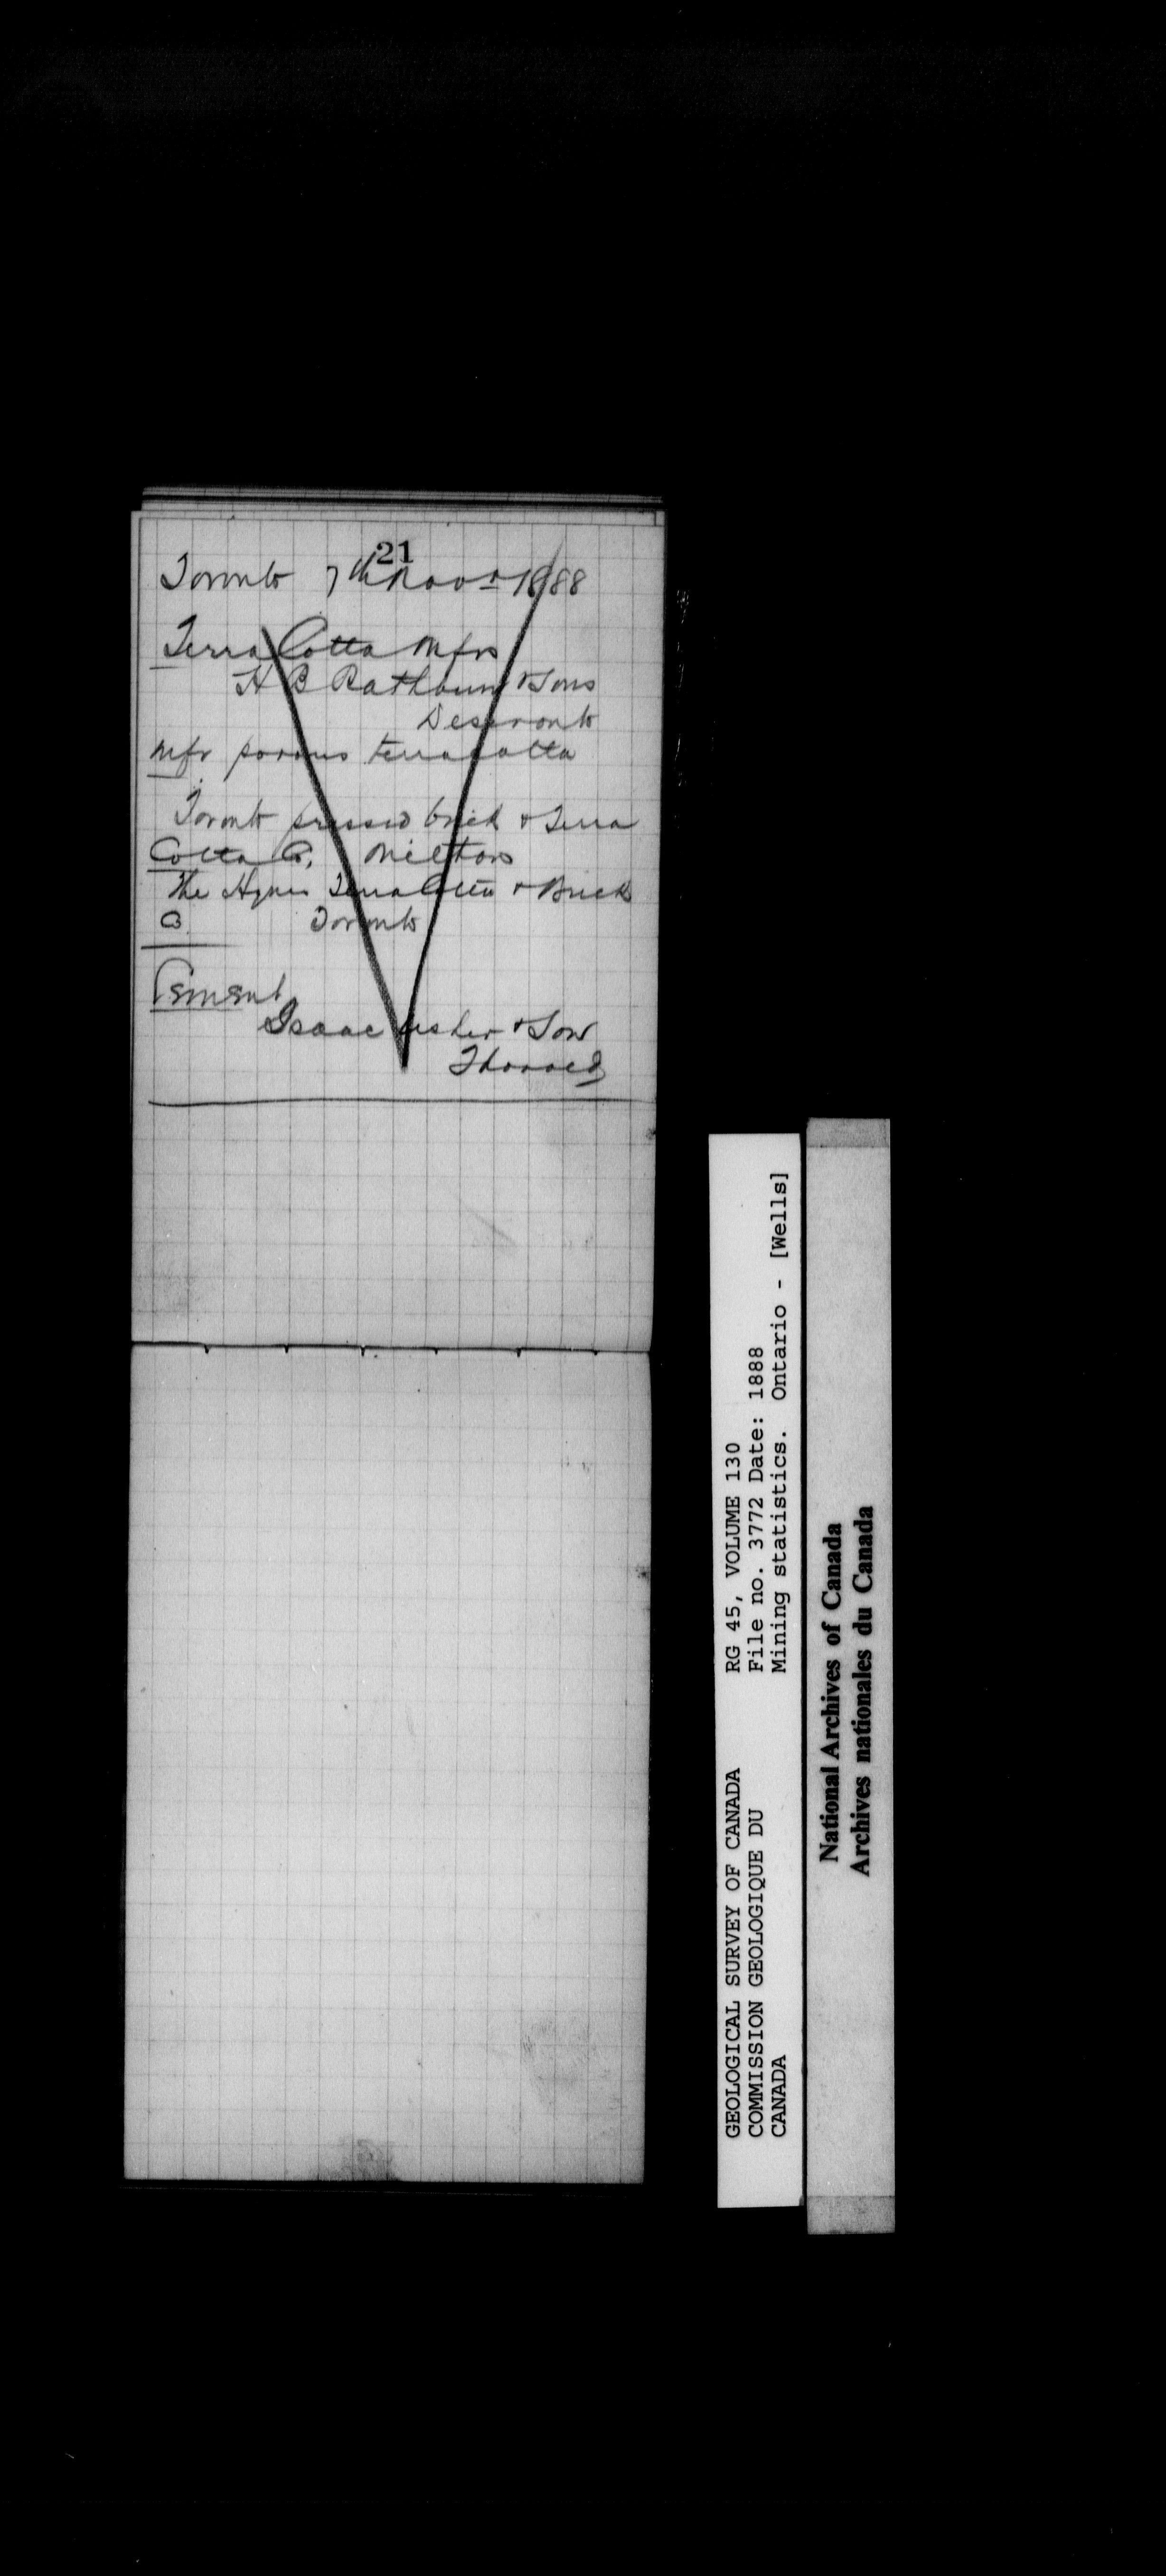 21
Toronto 7th Novr 1888
Terra Cotta Mfrs
H B Rathbun & Sons
Deseronto
Mfr porous terra cotta
Toronto pressed brick & Terra
Cotta Co, Milton
The Hynes Terra Cotta & Brick
Co Toronto
Cement
Isaac Usher & Son
Thorold
GEOLOGICAL SURVEY OF CANADA
COMMISSION GEOLOGIQUE DU
CANADA
RG 45, VOLUME 130
File no. 3772 Date: 1888
Mining statistics. Ontario - [Wells]
National Archives of Canada
Archives nationales du Canada